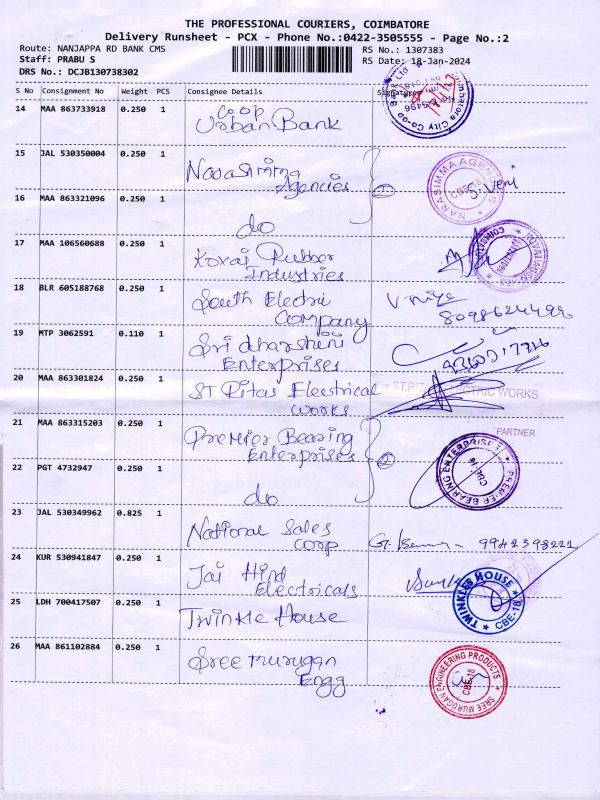 THE PROFESSIONAL COURIERS, COIMBATORE
Delivery Runsheet - PCX - Phone No.:0422-3505555 - Page No.:2
Route: NANJAPPA RD BANK CMS
RS No.: 1307383
Staff: PRABU S
RS Date: 18-Jan-2024
DRS No.: DCJB130738302
S No Consignment No Weight PCS Consignee Details Signature
14 MAA 863733918 0.250 1 Co-op
Urban Bank
Coimbatore City Co-op
15 JAL 530350004 0.250 1 Narashima
Agencies
2
NARASIMMA AGENCIES
CBE-18
S. Veni
16 MAA 863321096 0.250 1
do
17 MAA 106560688 0.250 1 Kovai Rubber
Industries
18 BLR 605188768 0.250 1 South Electri
Company
8098624490
19 MTP 3062591 0.110 1 Sri dharshini
Enterprises
20 MAA 863301824 0.250 1 ST Ritas Electrical
Works
For ST.RIT ECTRIC WORKS
PARTNER
21 MAA 863315203 0.250 1 Premier Bearing
Enterprises
2
PREMIER BEARING ENTERPRISES
CBE-18
22 PGT 4732947 0.250 1
do
23 JAL 530349962 0.825 1 National Sales
Corp
9942398221
24 KUR 530941847 0.250 1 Jai Hind
Electricals
25 LDH 700417507 0.250 1 Twinkle House
TWINKLES HOUSE
CBE-18
26 MAA 861102884 0.250 1 Sree Murugan
Engg
SREE MURUGAN ENGINEERING PRODUCTS
CBE-18